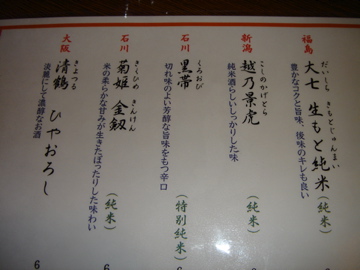 福島
だいしち きもとじゅんまい
大七 生もと純米 (純米)
豊かなコクと旨味、後味のキレも良い
新潟
こしのかげとら
越乃景虎 (純米)
純米酒らしいしっかりした味
石川
くろおび
黒帯 (特別純米)
切れ味のよい芳醇な旨味をもつ辛口
石川
きくひめ きんけん
菊姫 金劔 (純米)
米の柔らかな甘みが生きたぽったりした味わい
大阪
きよつる
清鶴 ひやおろし
淡麗にして濃醇なお酒
6
6